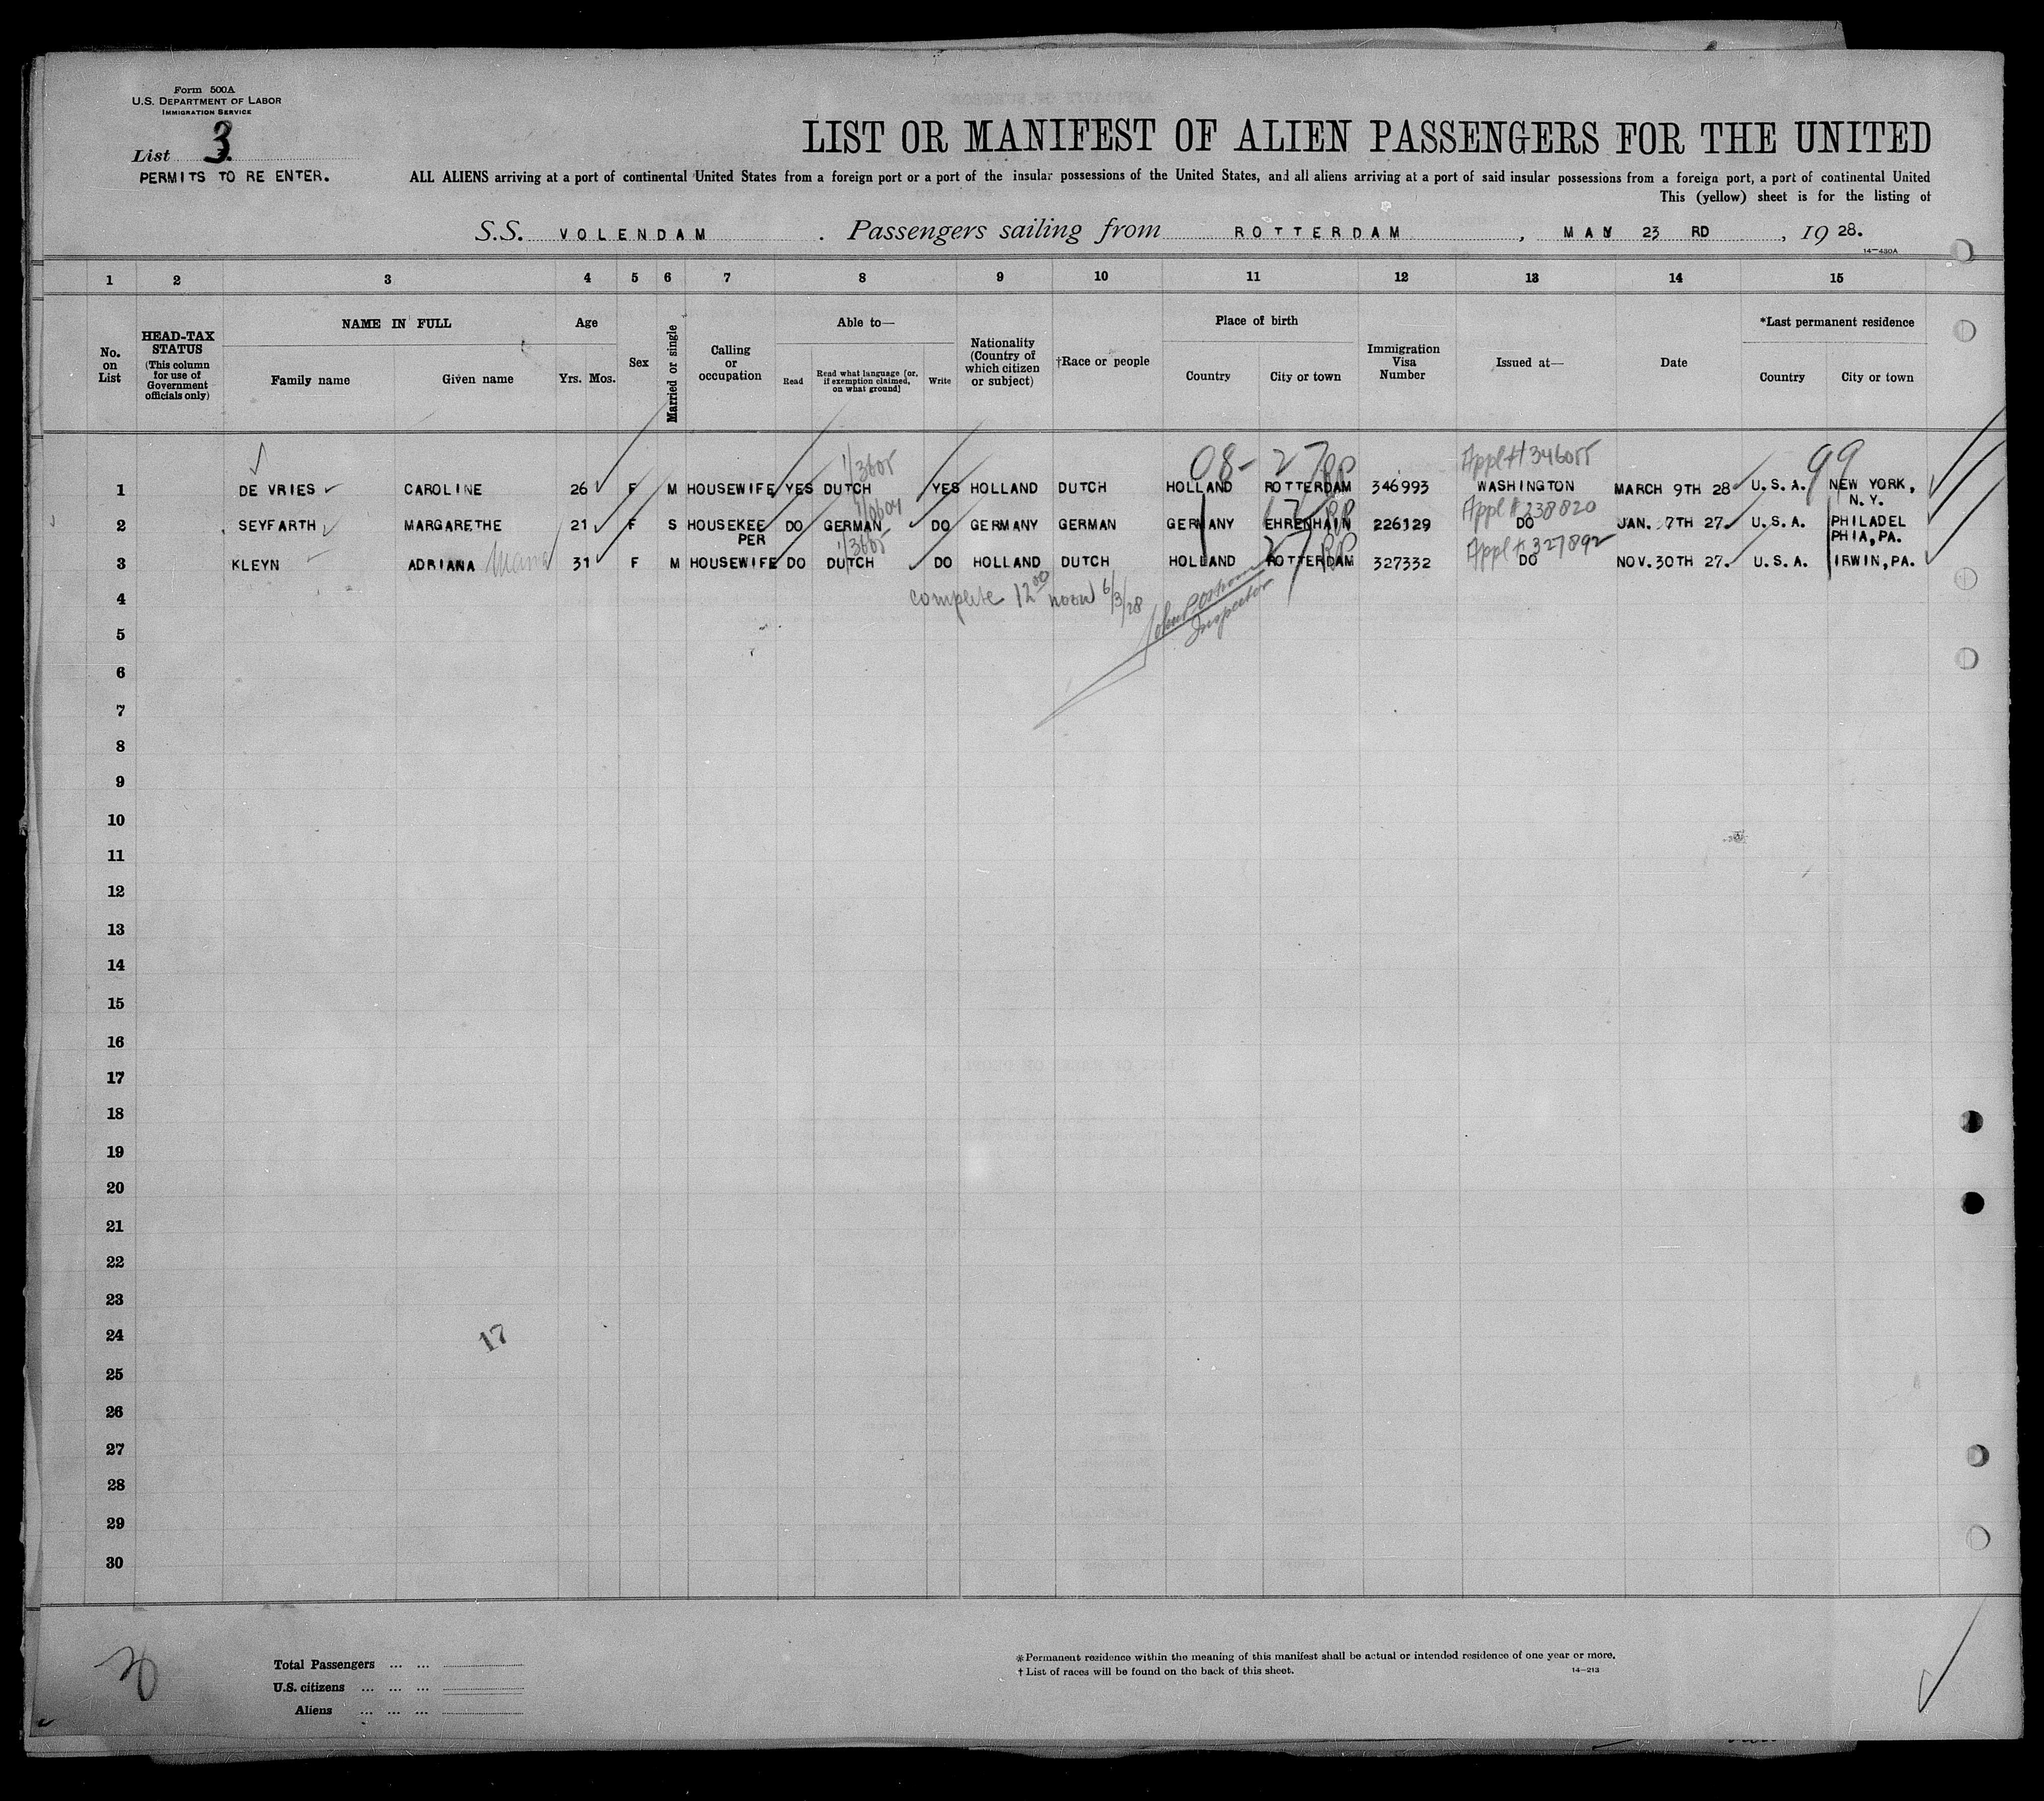 Form 500A
U.S. DEPARTMENT OF LABOR
IMMIGRATION SERVICE
List 3
PERMITS TO RE ENTER.
LIST OR MANIFEST OF ALIEN PASSENGERS FOR THE UNITED
ALL ALIENS arriving at a port of continental United States from a foreign port or a port of the insular possessions of the United States, and all aliens arriving at a port of said insular possessions from a foreign port, a port of continental United
This (yellow) sheet is for the listing of
S.S. VOLENDAM . Passengers sailing from ROTTERDAM , MAY 23 RD , 19 28.
14—430A
1 2 3 4 5 6 7 8 9 10 11 12 13 14 15
No. on List
HEAD-TAX STATUS
(This column for use of Government officials only)
NAME IN FULL
Family name Given name
Age
Yrs. Mos.
Sex
Married or single
Calling or occupation
Able to—
Read
Read what language [or, if exemption claimed, on what ground]
Write
Nationality (Country of which citizen or subject)
†Race or people
Place of birth
Country City or town
Immigration Visa Number
Issued at—
Date
*Last permanent residence
Country City or town
1/3605 08- 27 RP Appl # 346055 99
1 DE VRIES CAROLINE 26 F M HOUSEWIFE YES DUTCH YES HOLLAND DUTCH HOLLAND ROTTERDAM 346993 WASHINGTON MARCH 9TH 28 U.S.A. NEW YORK,
N.Y.
RP Appl # 238820
2 SEYFARTH MARGARETHE 21 F S HOUSEKEE DO GERMAN DO GERMANY GERMAN GERMANY EHRENHAIN 226129 DO JAN. 7TH 27. U.S.A. PHILADEL
PER PHIA, PA.
1/3605 27 RP Appl # 327892
3 KLEYN ADRIANA 31 F M HOUSEWIFE DO DUTCH DO HOLLAND DUTCH HOLLAND ROTTERDAM 327332 DO NOV. 30TH 27. U.S.A. IRWIN, PA.
4 complete 12 00 noon 6/3/28
Inspector
5
6
7
8
9
10
11
12
13
14
15
16
17
18
19
20
21
22
23
24
17
25
26
27
28
29
30
Total Passengers ... ...
U.S. citizens ... ... ...
Aliens ... ... ...
*Permanent residence within the meaning of this manifest shall be actual or intended residence of one year or more.
† List of races will be found on the back of this sheet.
14—213